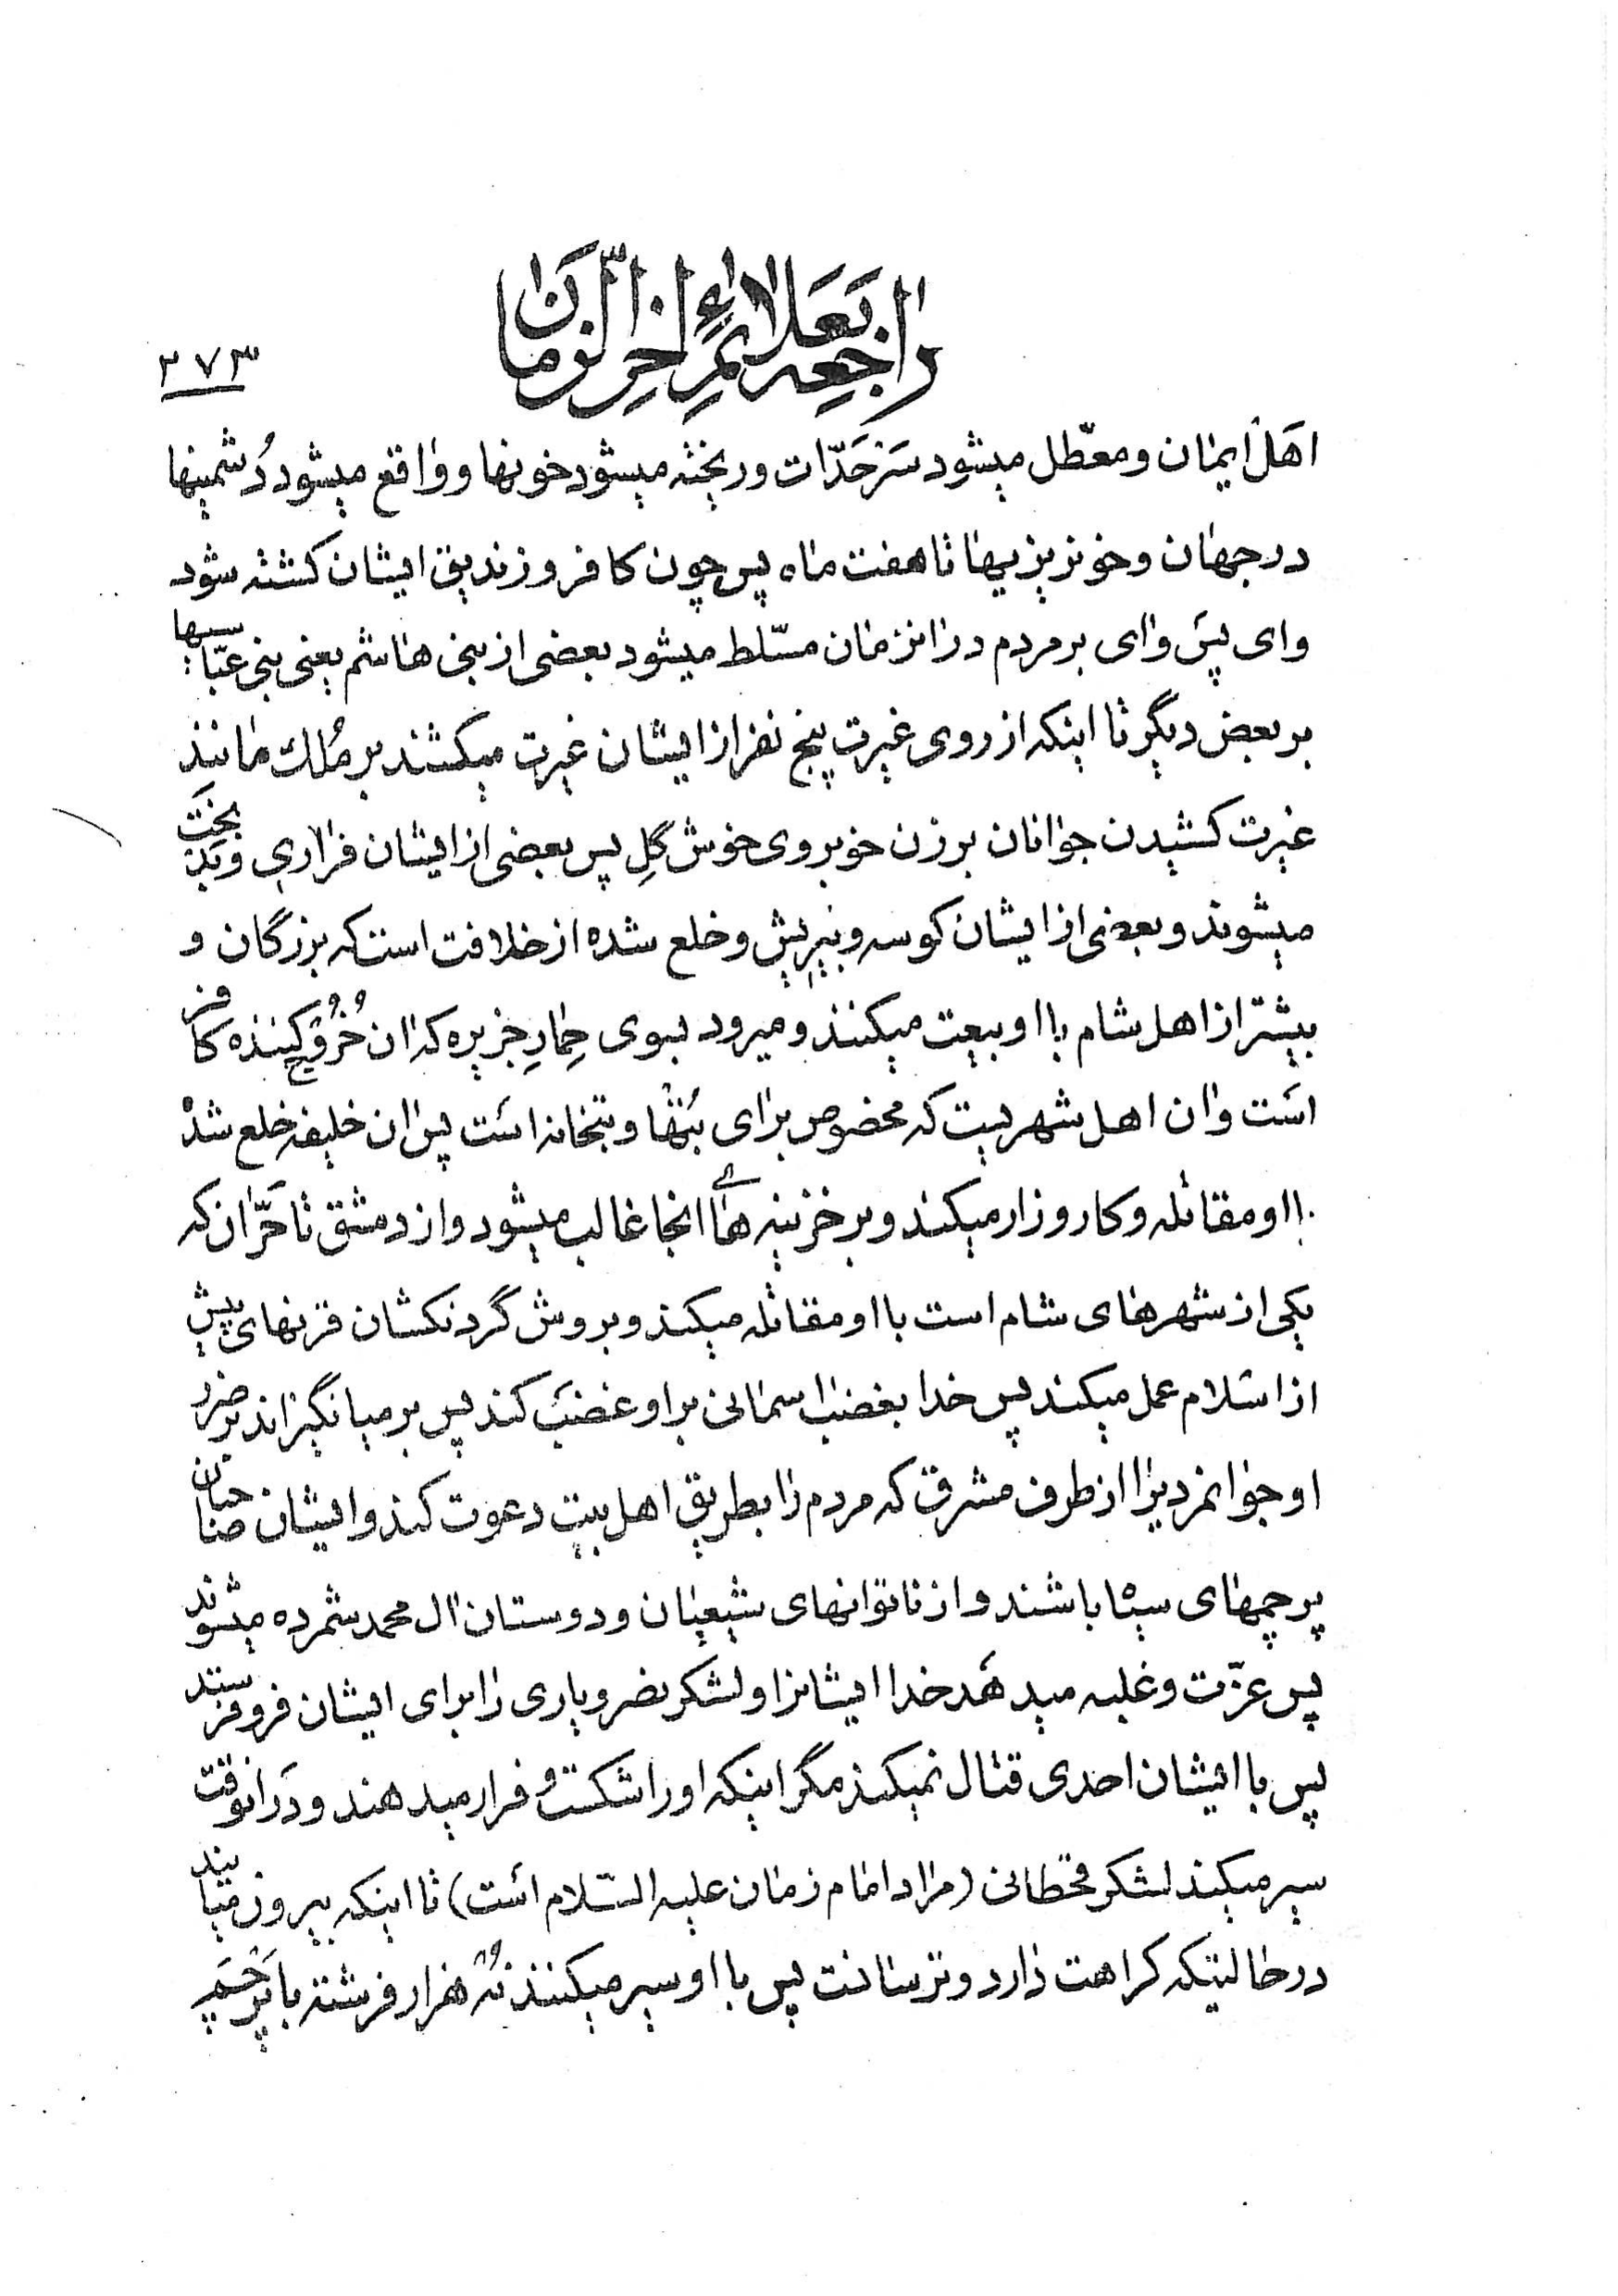 راجعه بعلائم اخر الزمان
۲۷۳
اهل ایمان و معطّل میشود سرحدّات و ریخته میشود خونها و واقع میشود دُشمنیها
در جهان و خونریزیها تا هفت ماه پس چون کافر و زندیق ایشان کشته شود
وای پس وای بر مردم در انزمان مسّلط میشود بعضی از بنی هاشم یعنی بنی عبّاسیها
بر بعض دیگر تا اینکه از روی غیرت پنج نفر از ایشان غیرت میکشند بر مُلک مانند
غیرت کشیدن جوانان بر زن خوبروی خوش گِل پس بعضی از ایشان فراری و بدبخت
میشوند و بعضی از ایشان کوسه و بیریش و خلع شده از خلافت است که بزرگان و
بیشتر از اهل شام با او بیعت میکنند و میرود بسوی حِمارِ جزیره که ان خُرُوج کننده کافر
است و ان اهل شهریست که مخصوص برای بُتها و بتخانه است پس ان خلیفه خلع شده
با او مقاتله و کار و زار میکند و بر خزینه های انجا غالب میشود و از دمشق تا حَرّان که
یکی از شهرهای شام است با او مقاتله میکند و بروش گردنکشان قرنهای پیش
از اسلام عمل میکند پس خدا بغضب اسمانی بر او غضب کند پس بر میانگیزاند بر ضرر
او جوانمردیرا از طرف مشرق که مردم را بطریق اهل بیت دعوت کند و ایشان صاحبان
پرچمهای سیاه باشند و از ناتوانهای شیعیان و دوستان ال محمد شمرده میشوند
پس عزّت و غلبه میدهد خدا ایشانرا و لشکر نصر و یاری را برای ایشان فرو فرستد
پس با ایشان احدی قتال نمیکند مگر اینکه او را شکست و فرار میدهند و در انوقت
سیر میکند لشکر قحطانی (مراد امام زمان علیه السّلام است) تا اینکه بیرون میایند
در حالتیکه کراهت دارد و ترسانست پس با او سیر میکنند نُه هزار فرشته با پرچم